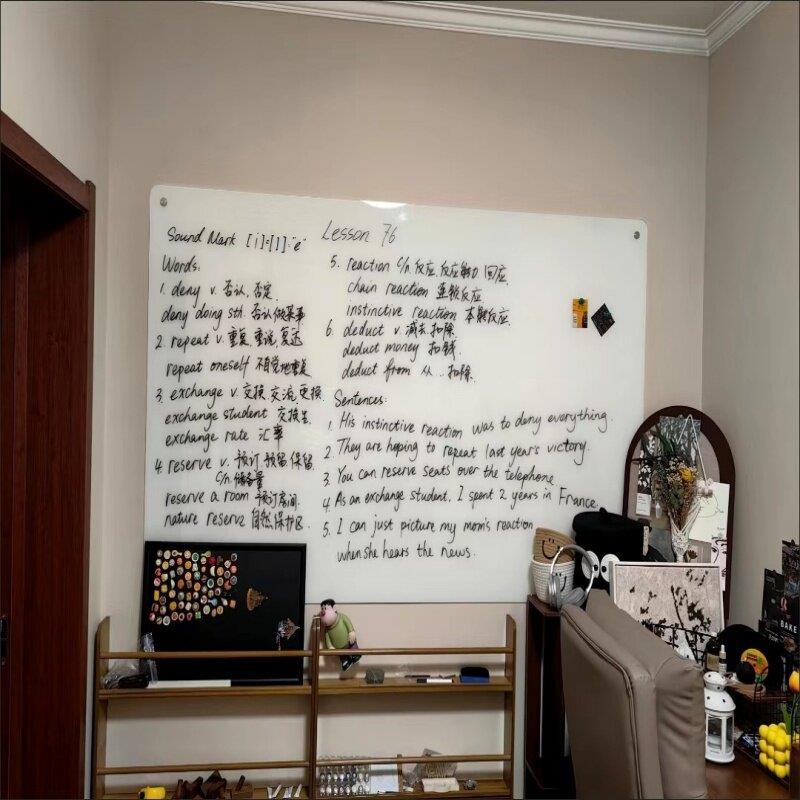 Lesson 76
Sound Mark [i]=[I]:"e"
Words:
1. deny v. 否认, 否定.
deny doing sth. 否认做某事
2. repeat v. 重复, 重说, 复述
repeat oneself 不自觉地重复
3. exchange v. 交换, 交流, 更换.
exchange student 交换生
exchange rate 汇率
4. reserve v. 预订, 预留, 保留.
c/n. 储备量
reserve a room 预订房间
nature reserve 自然保护区.
5. reaction c/n. 反应, 反应能力, 回应.
chain reaction 连锁反应
instinctive reaction 本能反应.
6. deduct v. 减去, 扣除
deduct money 扣钱.
deduct from 从...扣除.
Sentences:
1. His instinctive reaction was to deny everything.
2. They are hoping to repeat last year's victory.
3. You can reserve seats over the telephone.
4. As an exchange student, I spent 2 years in France.
5. I can just picture my mom's reaction
when she hears the news.
BAKE